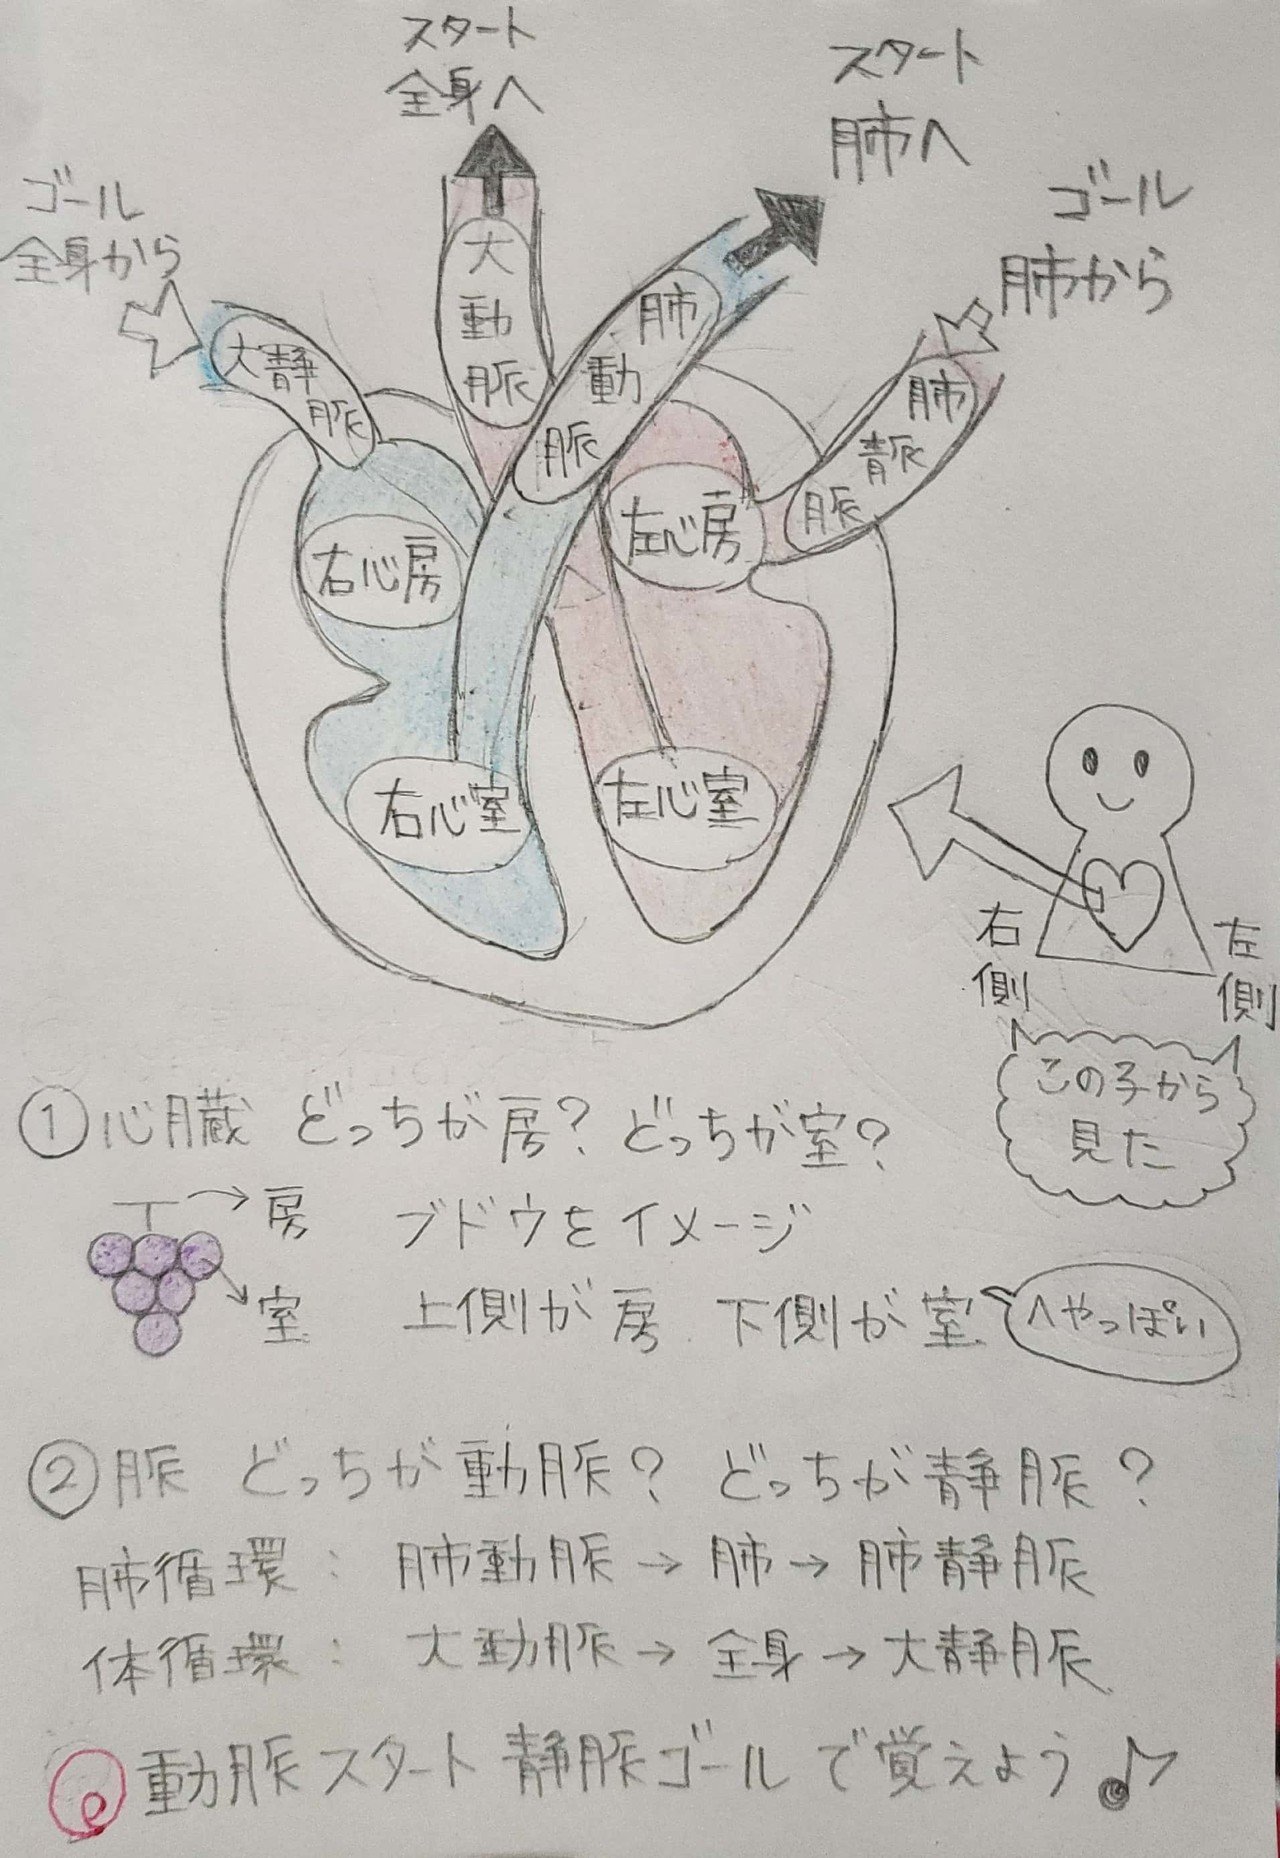 スタート
全身へ
スタート
肺へ
ゴール
全身から
ゴール
肺から
大動脈
肺動脈
大静脈
肺静脈
右心房
左心房
右心室
左心室
右側
左側
この子から
見た
①心臓 どっちが房？どっちが室？
房 ブドウをイメージ
室 上側が房 下側が室 へやっぽい
②脈 どっちが動脈？どっちが静脈？
肺循環：肺動脈→肺→肺静脈
体循環：大動脈→全身→大静脈
動脈スタート静脈ゴールで覚えよう♪